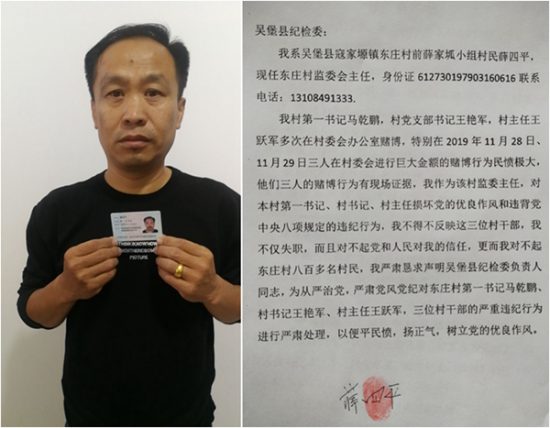 吴堡县纪检委：
我系吴堡县寇家塬镇东庄村前薛家坬小组村民薛四平，
现任东庄村监委会主任，身份证 612730197903160616 联系
电话：13108491333.
我村第一书记马乾鹏，村党支部书记王艳军，村主任王
跃军多次在村委会办公室赌博，特别在 2019 年 11 月 28 日、
11 月 29 日三人在村委会进行巨大金额的赌博行为民愤极大，
他们三人的赌博行为有现场证据，我作为该村监委主任，对
本村第一书记、村书记、村主任损坏党的优良作风和违背党
中央八项规定的违纪行为，我不得不反映这三位村干部，我
不仅失职，而且对不起党和人民对我的信任，更而我对不起
东庄村八百多名村民，我严肃恳求声明吴堡县纪检委负责人
同志，为从严治党，严肃党风党纪对东庄村第一书记马乾鹏、
村书记王艳军、村主任王跃军，三位村干部的严重违纪行为
进行严肃处理，以便平民愤，扬正气，树立党的优良作风。
薛四平